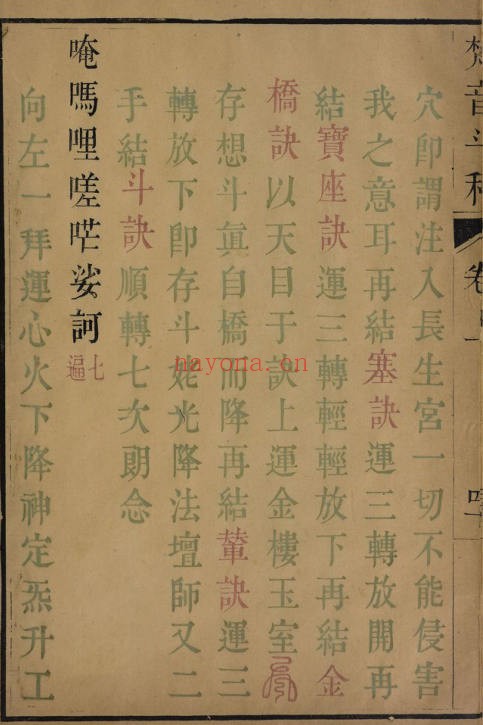 梵音斗科
卷上
穴卽謂注入長生宮一切不能侵害
我之意耳再結塞訣運三轉放開再
結寶座訣運三轉輕輕放下再結金
橋訣以天目于訣上運金樓玉室
存想斗眞自橋而降再結輦訣運三
轉放下卽存斗姥光降法壇師又二
手結斗訣順轉七次朗念
唵嗎哩嗟𠴊娑訶七遍
向左一拜運心火下降神定炁升工
nayona.cn